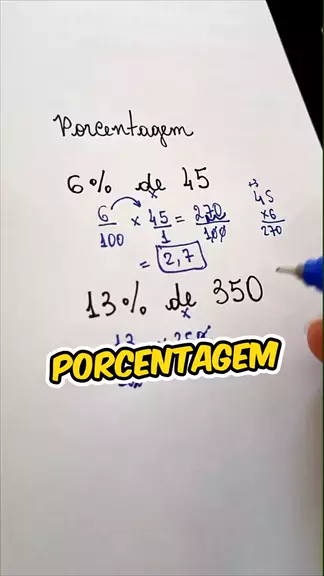 Porcentagem
6% de 45
x
6/100 x 45/1 = 270/100
+3
45
x6
270
= 2,7
13% de 350
x
13
PORCENTAGEM